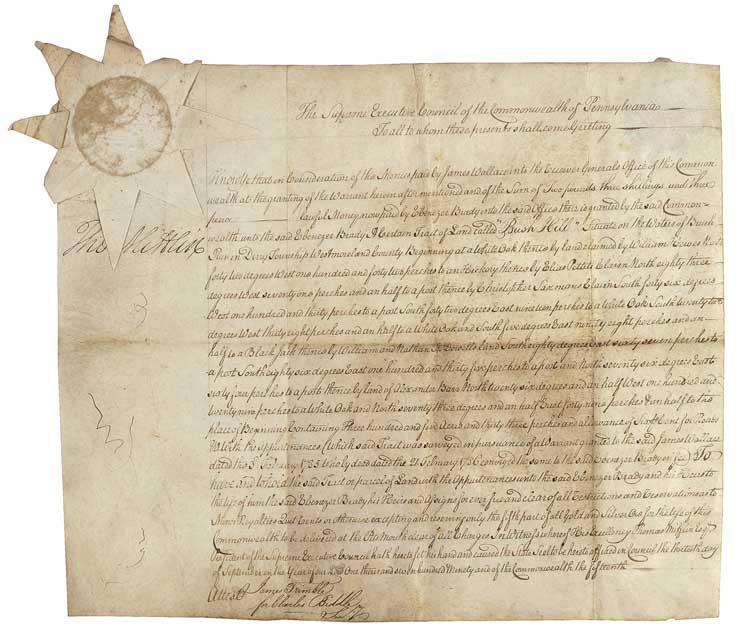 The Supreme Executive Council of the Commonwealth of Pennsylvania
To all to whom these presents shall come Greeting
Know Ye that in Consideration of the Monies paid by James Wallace into the Receiver Generals Office of this Common-
wealth at the granting of the Warrant herein after mentioned and of the Sum of Two pounds three shillings and three
pence lawful Money now paid by Ebenezer Brady into the said Office there is granted by the said Common-
wealth unto the said Ebenezer Brady A Certain Tract of Land called "Bush Hill" Situate on the Waters of Brush
Run in Derry Township Westmoreland County Beginning at a White Oak thence by land claimed by William North
forty two degrees West one hundred and forty two perches to an Hickory thence by Elias Pettits Claim North eighty three
degrees West seventy one perches and an half to a post thence by Christopher Saxmans Claim South forty six degrees
West one hundred and thirty perches to a post South forty two degrees East nineteen perches to a White Oak South twenty two
degrees West thirty eight perches and an half to a White Oak and South five degrees East ninety eight perches and an
half to a Black Oak thence by William and Nathan land South eighty degrees East sixty seven perches to
a post South eighty six degrees East one hundred and thirty five perches to a post and North seventy six degrees East
sixty four perches to a post thence by land of Alexander Barr North twenty six degrees and an half West one hundred and
twenty nine perches to a White Oak and North seventy three degrees and an half East forty nine perches & an half to the
place of Beginning Containing Three hundred and five Acres and thirty three perches and allowance of Six ⅌ Cent for Roads
&c With the Appurtenances (Which said Tract was surveyed in pursuance of a Warrant granted to the said James Wallace
dated the 3d February 1785 who by deed dated the 21 February conveyed the same to the said Ebenezer Brady in fee) To
have and to hold the said Tract or parcel of Land with the Appurtenances unto the said Ebenezer Brady and his Heirs to
the Use of him the said Ebenezer Brady his Heirs and Assigns for ever free and clear of all Restrictions and Reservations as to
Mines Royalties Quit Rents or otherwise excepting and reserving only the fifth part of all Gold and Silver Ore for the Use of this
Commonwealth to be delivered at the Pits Mouth clear of all Charges In Witness whereof His Excellency Thomas Mifflin Esqr
President of the Supreme Executive Council hath hereto set his hand and caused the State Seal to be hereto affixed in Council the thirtieth day
of September in the Year of our Lord One thousand seven hundred Ninety and of the Commonwealth the fifteenth
Tho Mifflin
Attest James Trimble
for Charles Biddle
Secy